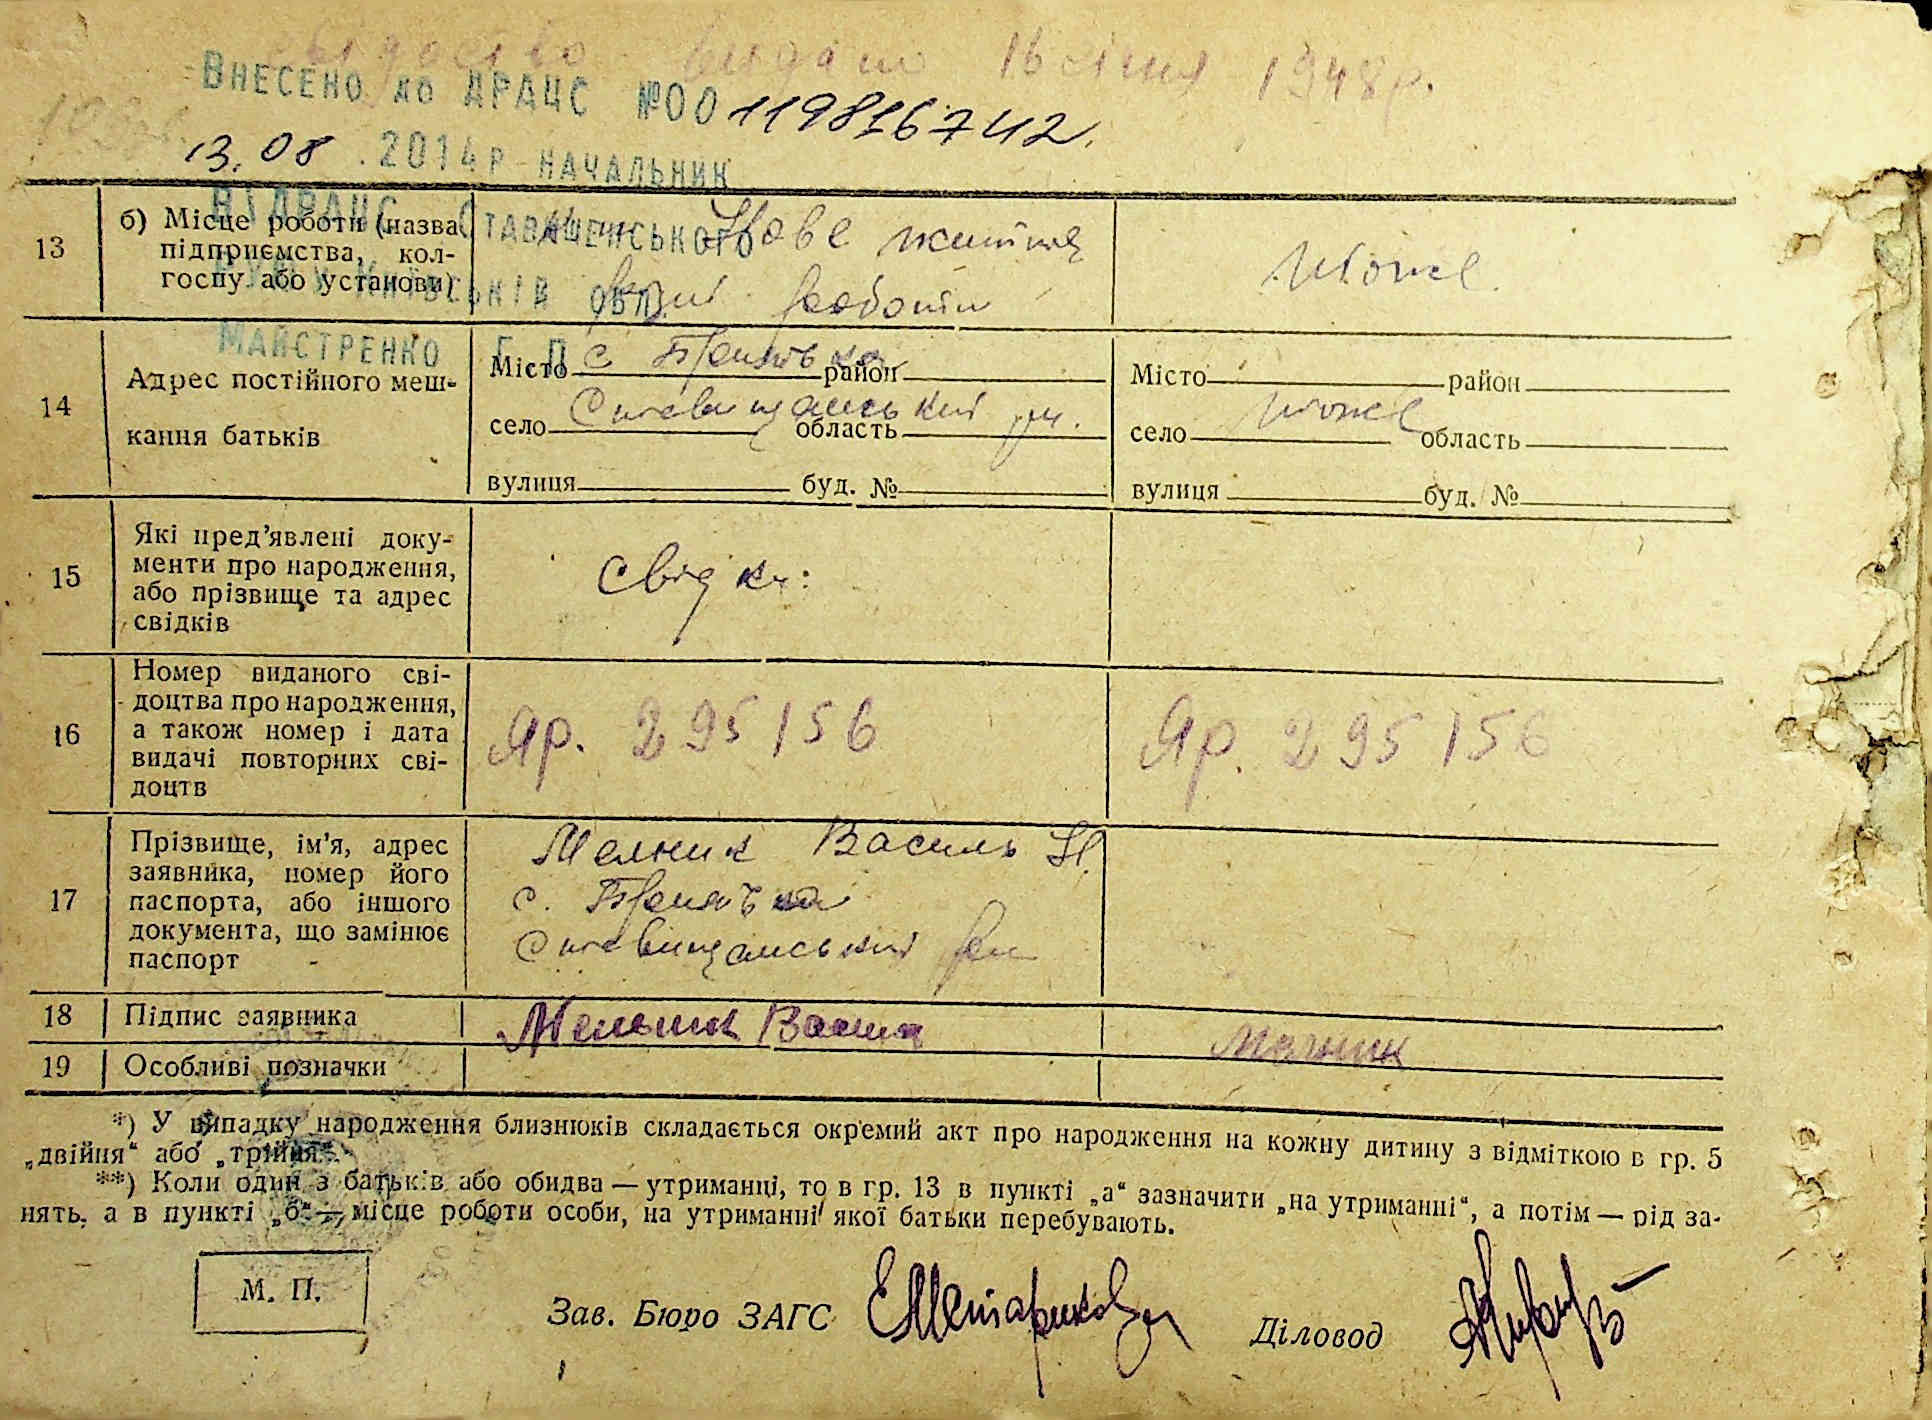 свідоство видано 16 січня 1948 р.
Внесено до ДРАЦС №00 1198816742.
13.08.2014р начальник
ВДРАЦС Ставищенського
РУЮ у Київській обл.
Майстренко Г П
13 б) Місце роботи (назва підприємства, колгоспу або установи)
Нове життя
різні роботи
тоже
14 Адрес постійного мешкання батьків
Місто с район
село Ставищанський рн. область
вулиця буд. №
Місто район
село тоже область
вулиця буд. №
15 Які пред'явлені документи про народження, або прізвище та адрес свідків
свідки:
16 Номер виданого свідоцтва про народження, а також номер і дата видачі повторних свідоцтв
Яр. 295156
Яр. 295156
17 Прізвище, ім'я, адрес заявника, номер його паспорта, або іншого документа, що замінює паспорт
Мелник Василь
с.
Ставищанський рн
18 Підпис заявника
Мельник Васил
Мелник
19 Особливі позначки
*) У випадку народження близнюків складається окремий акт про народження на кожну дитину з відміткою в гр. 5
„двійня“ або „трійня“.
**) Коли один з батьків або обидва — утриманці, то в гр. 13 в пункті „а“ зазначити „на утриманні“, а потім — рід за-
нять, а в пункті „б“ — місце роботи особи, на утриманні якої батьки перебувають.
М. П.
Зав. Бюро ЗАГС
Діловод